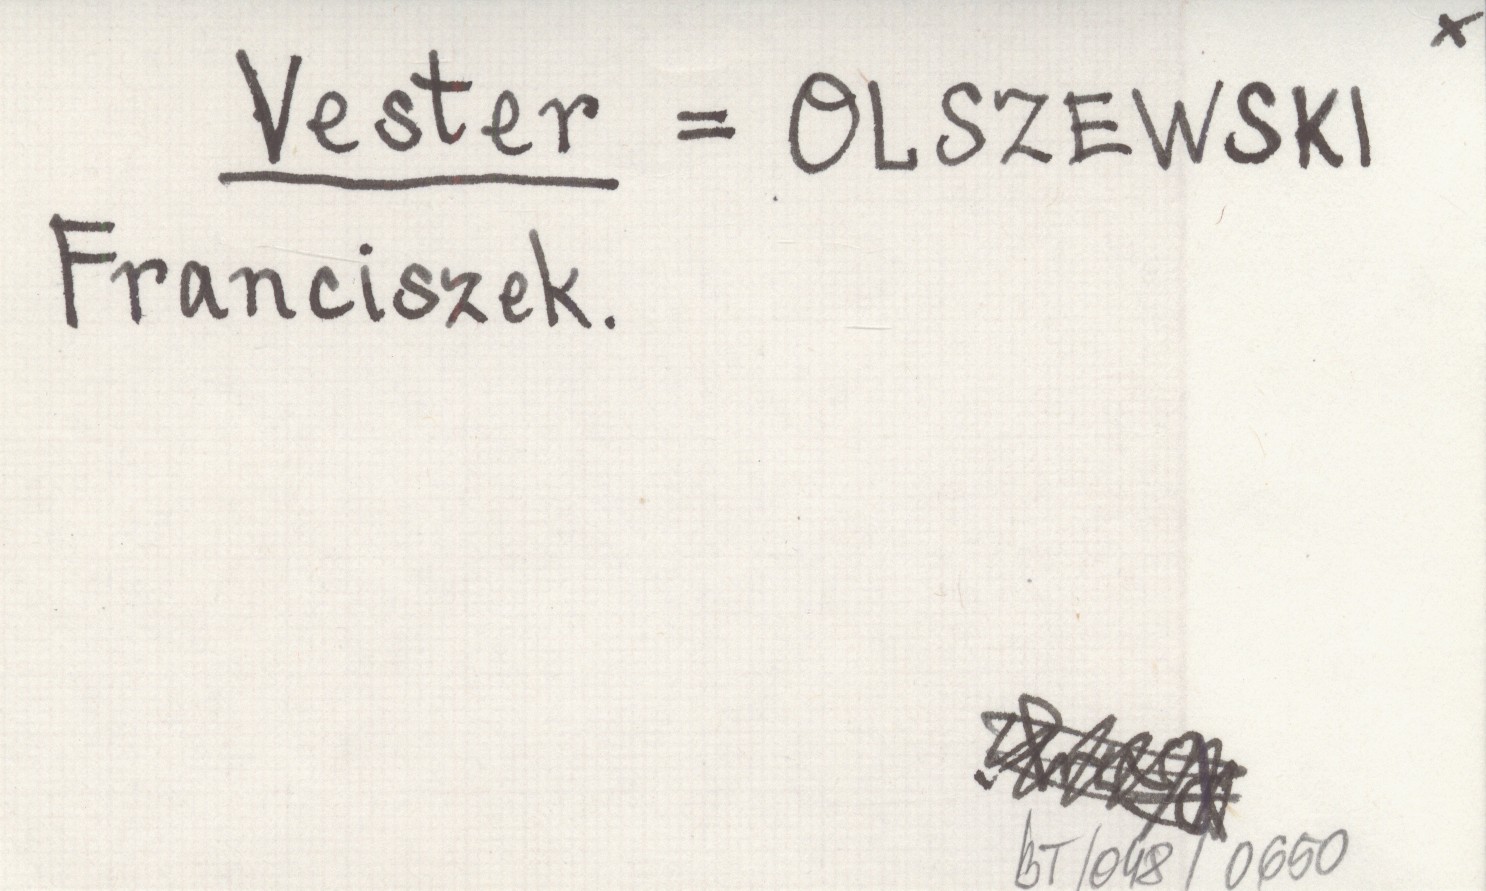 x
Vester = OLSZEWSKI
Franciszek.
BT/048/0650